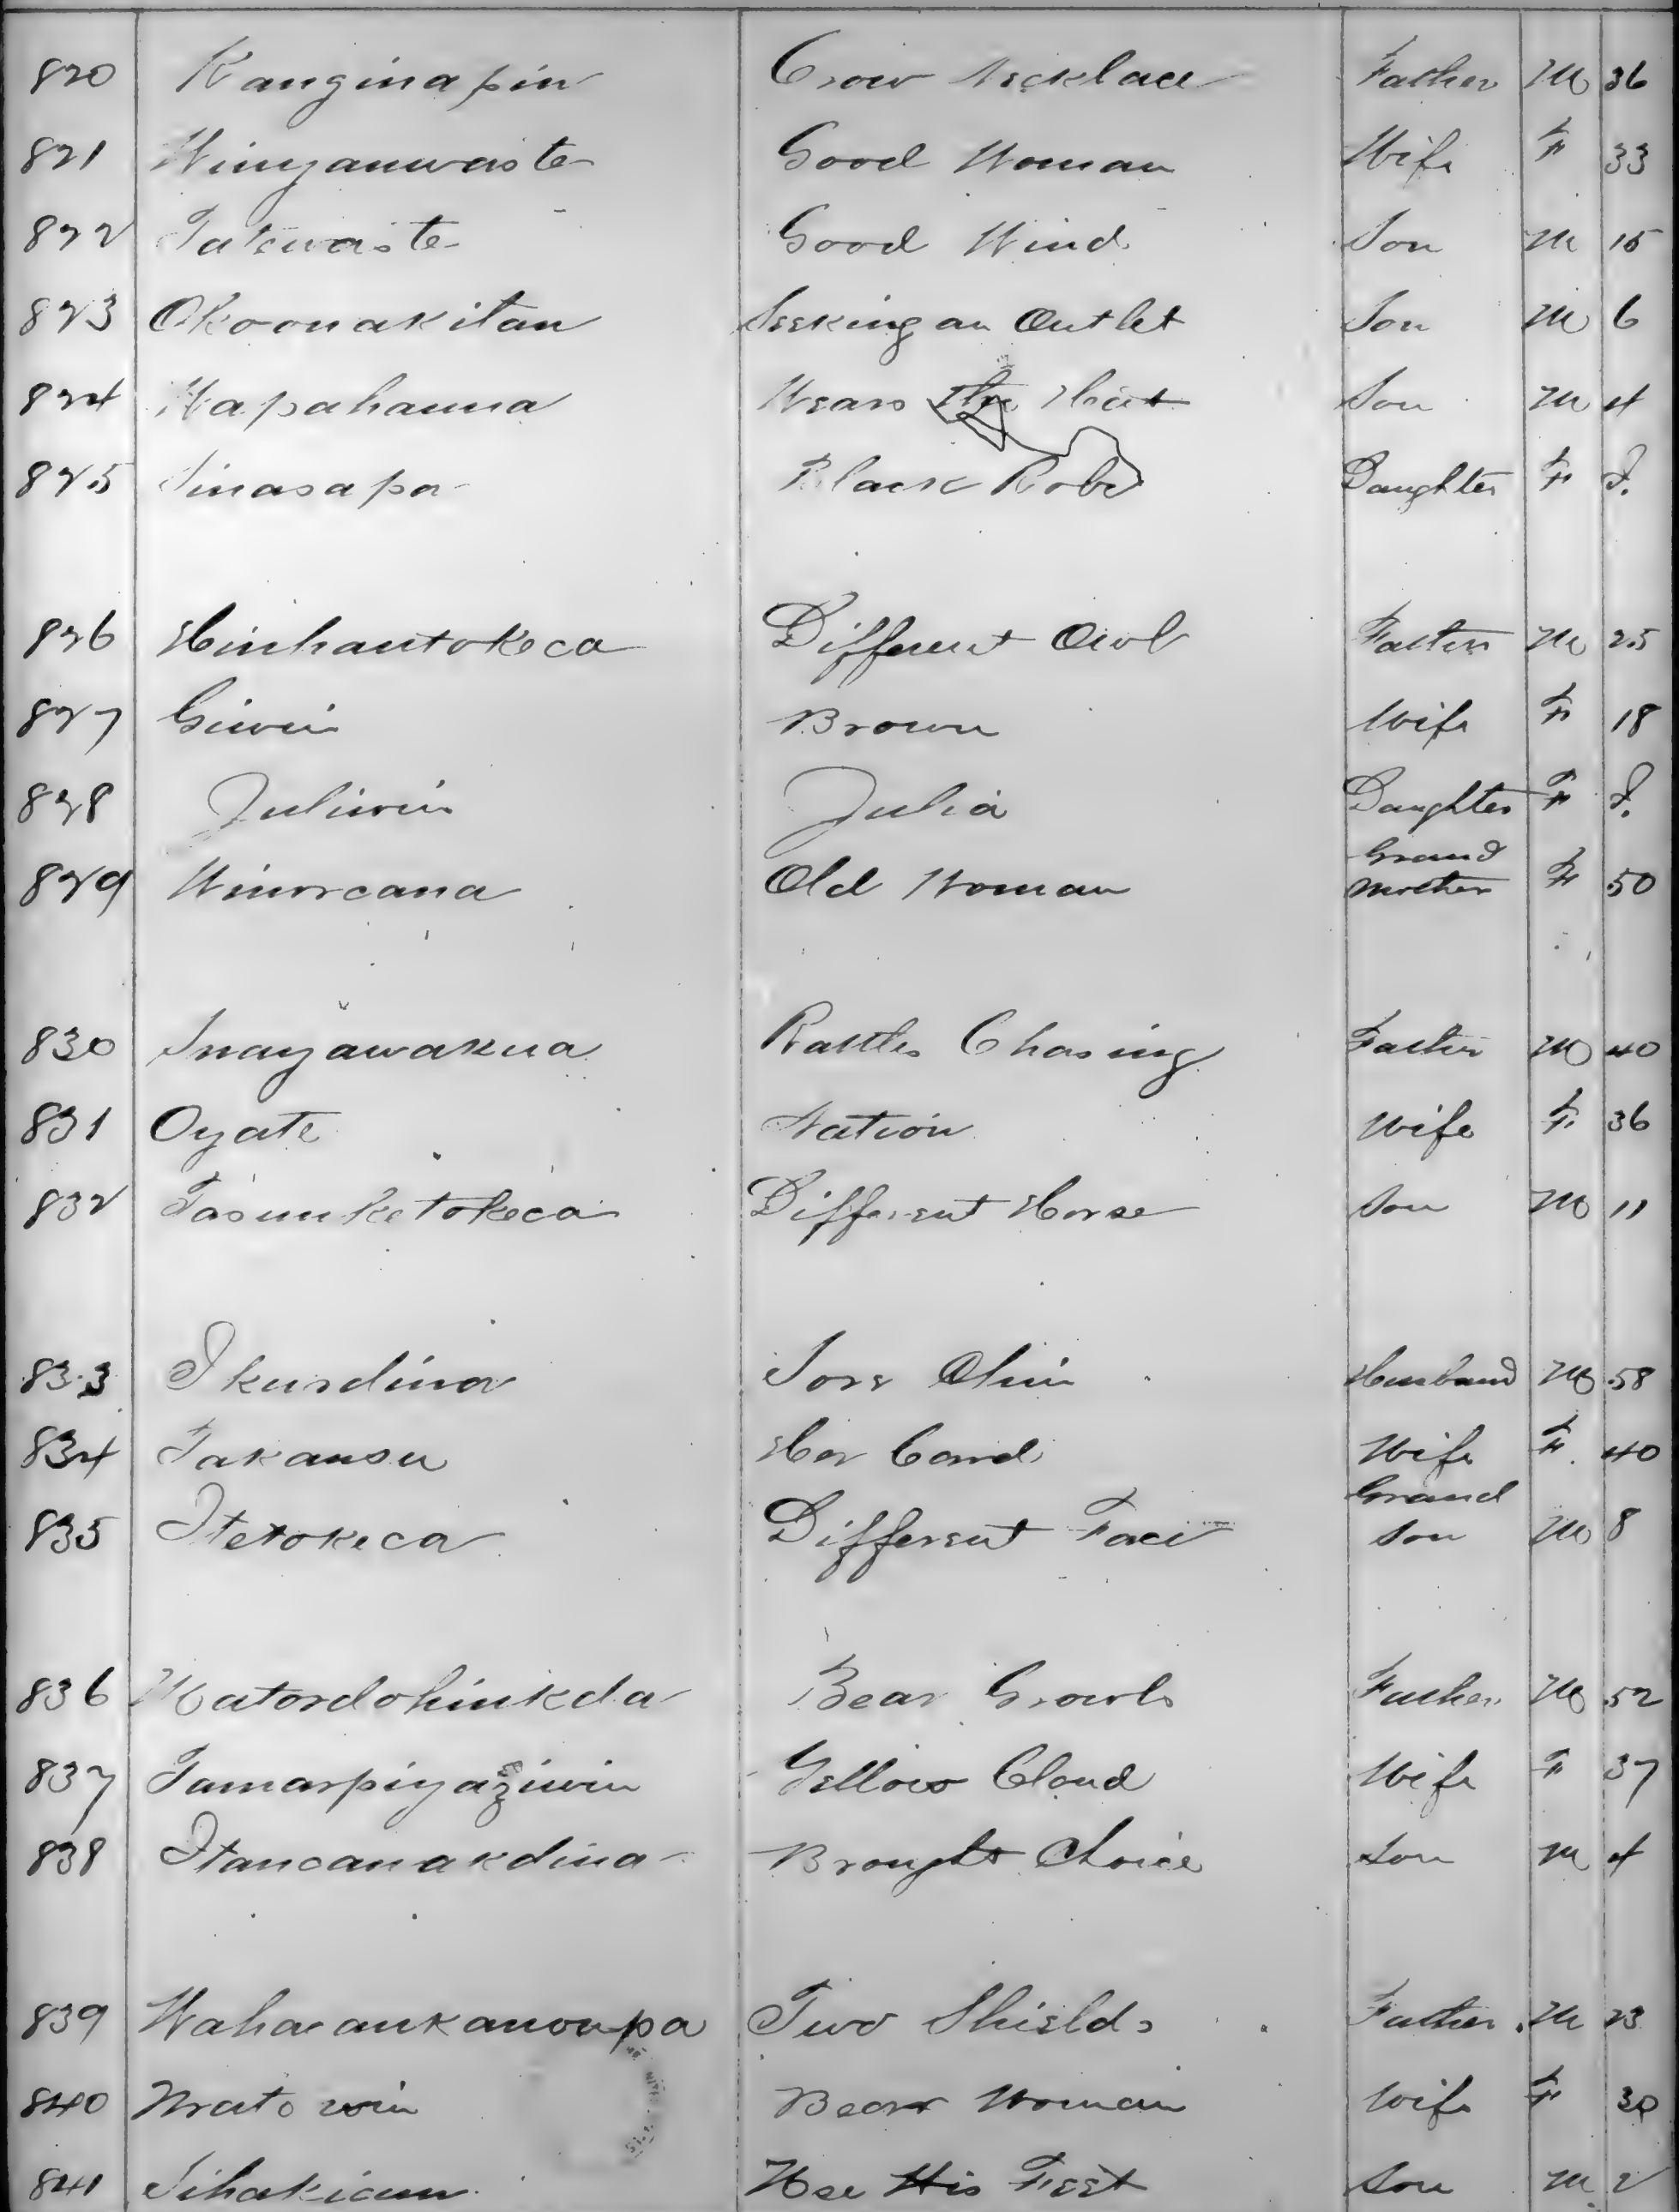 820 Kanginapin Crow Necklace Father M 36
821 Winyanwaste Good Woman Wife F 33
822 Tatewaste Good Wind Son M 15
823 Okoonakitan Seeking an Outlet Son M 6
824 Wapahauna Wears the Hat Son M 4
825 Sinasapa Black Robe Daughter F
826 Hinhantokeca Different Owl Father M 25
827 Giwin Brown Wife F 18
828 Juliwin Julia Daughter F
829 Winorcana Old Woman Grand Mother F 50
830 Snayawakua Rattles Chasing Father M 40
831 Oyate Nation Wife F 36
832 Tasunketokeca Different Horse Son M 11
833 Ikusdina Sore Chin Husband M 58
834 Takansu Her Card Wife F 40
835 Itetokeca Different Face Grand Son M 8
836 Matordohinkda Bear Growls Father M 52
837 Tamarpiyaziwin Yellow Cloud Wife F 37
838 Itancanakdina Brought Choice Son M 4
839 Wahacankanonpa Two Shields Father M 23
840 Mato win Bear Woman Wife F 30
841 Sihakicun Use His Feet Son M 2